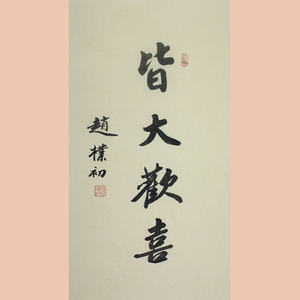 皆大歡喜
趙樸初